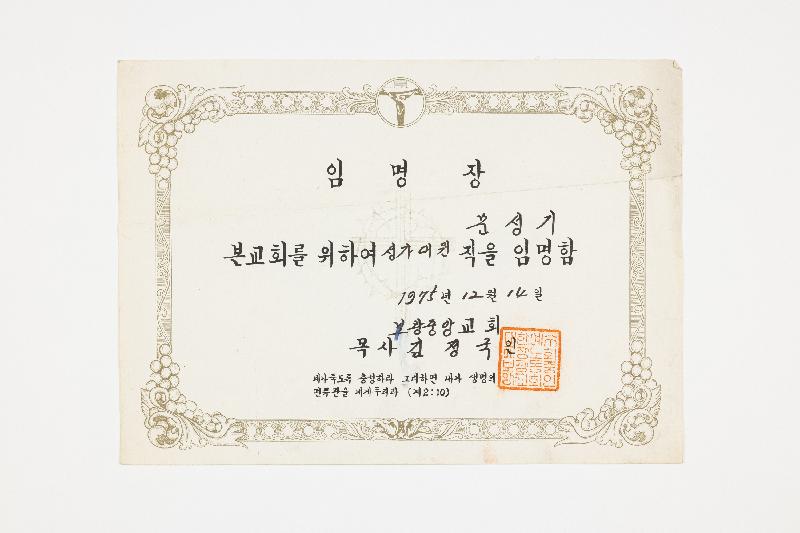 임 명 장
문성기
본교회를 위하여 성가대원 직을 임명함
1975년 12월 14일
부광중앙교회
목사 김 정 국 인
네가 죽도록 충성하라 그리하면 내가 생명의
면류관을 네게 주리라 (계2:10)